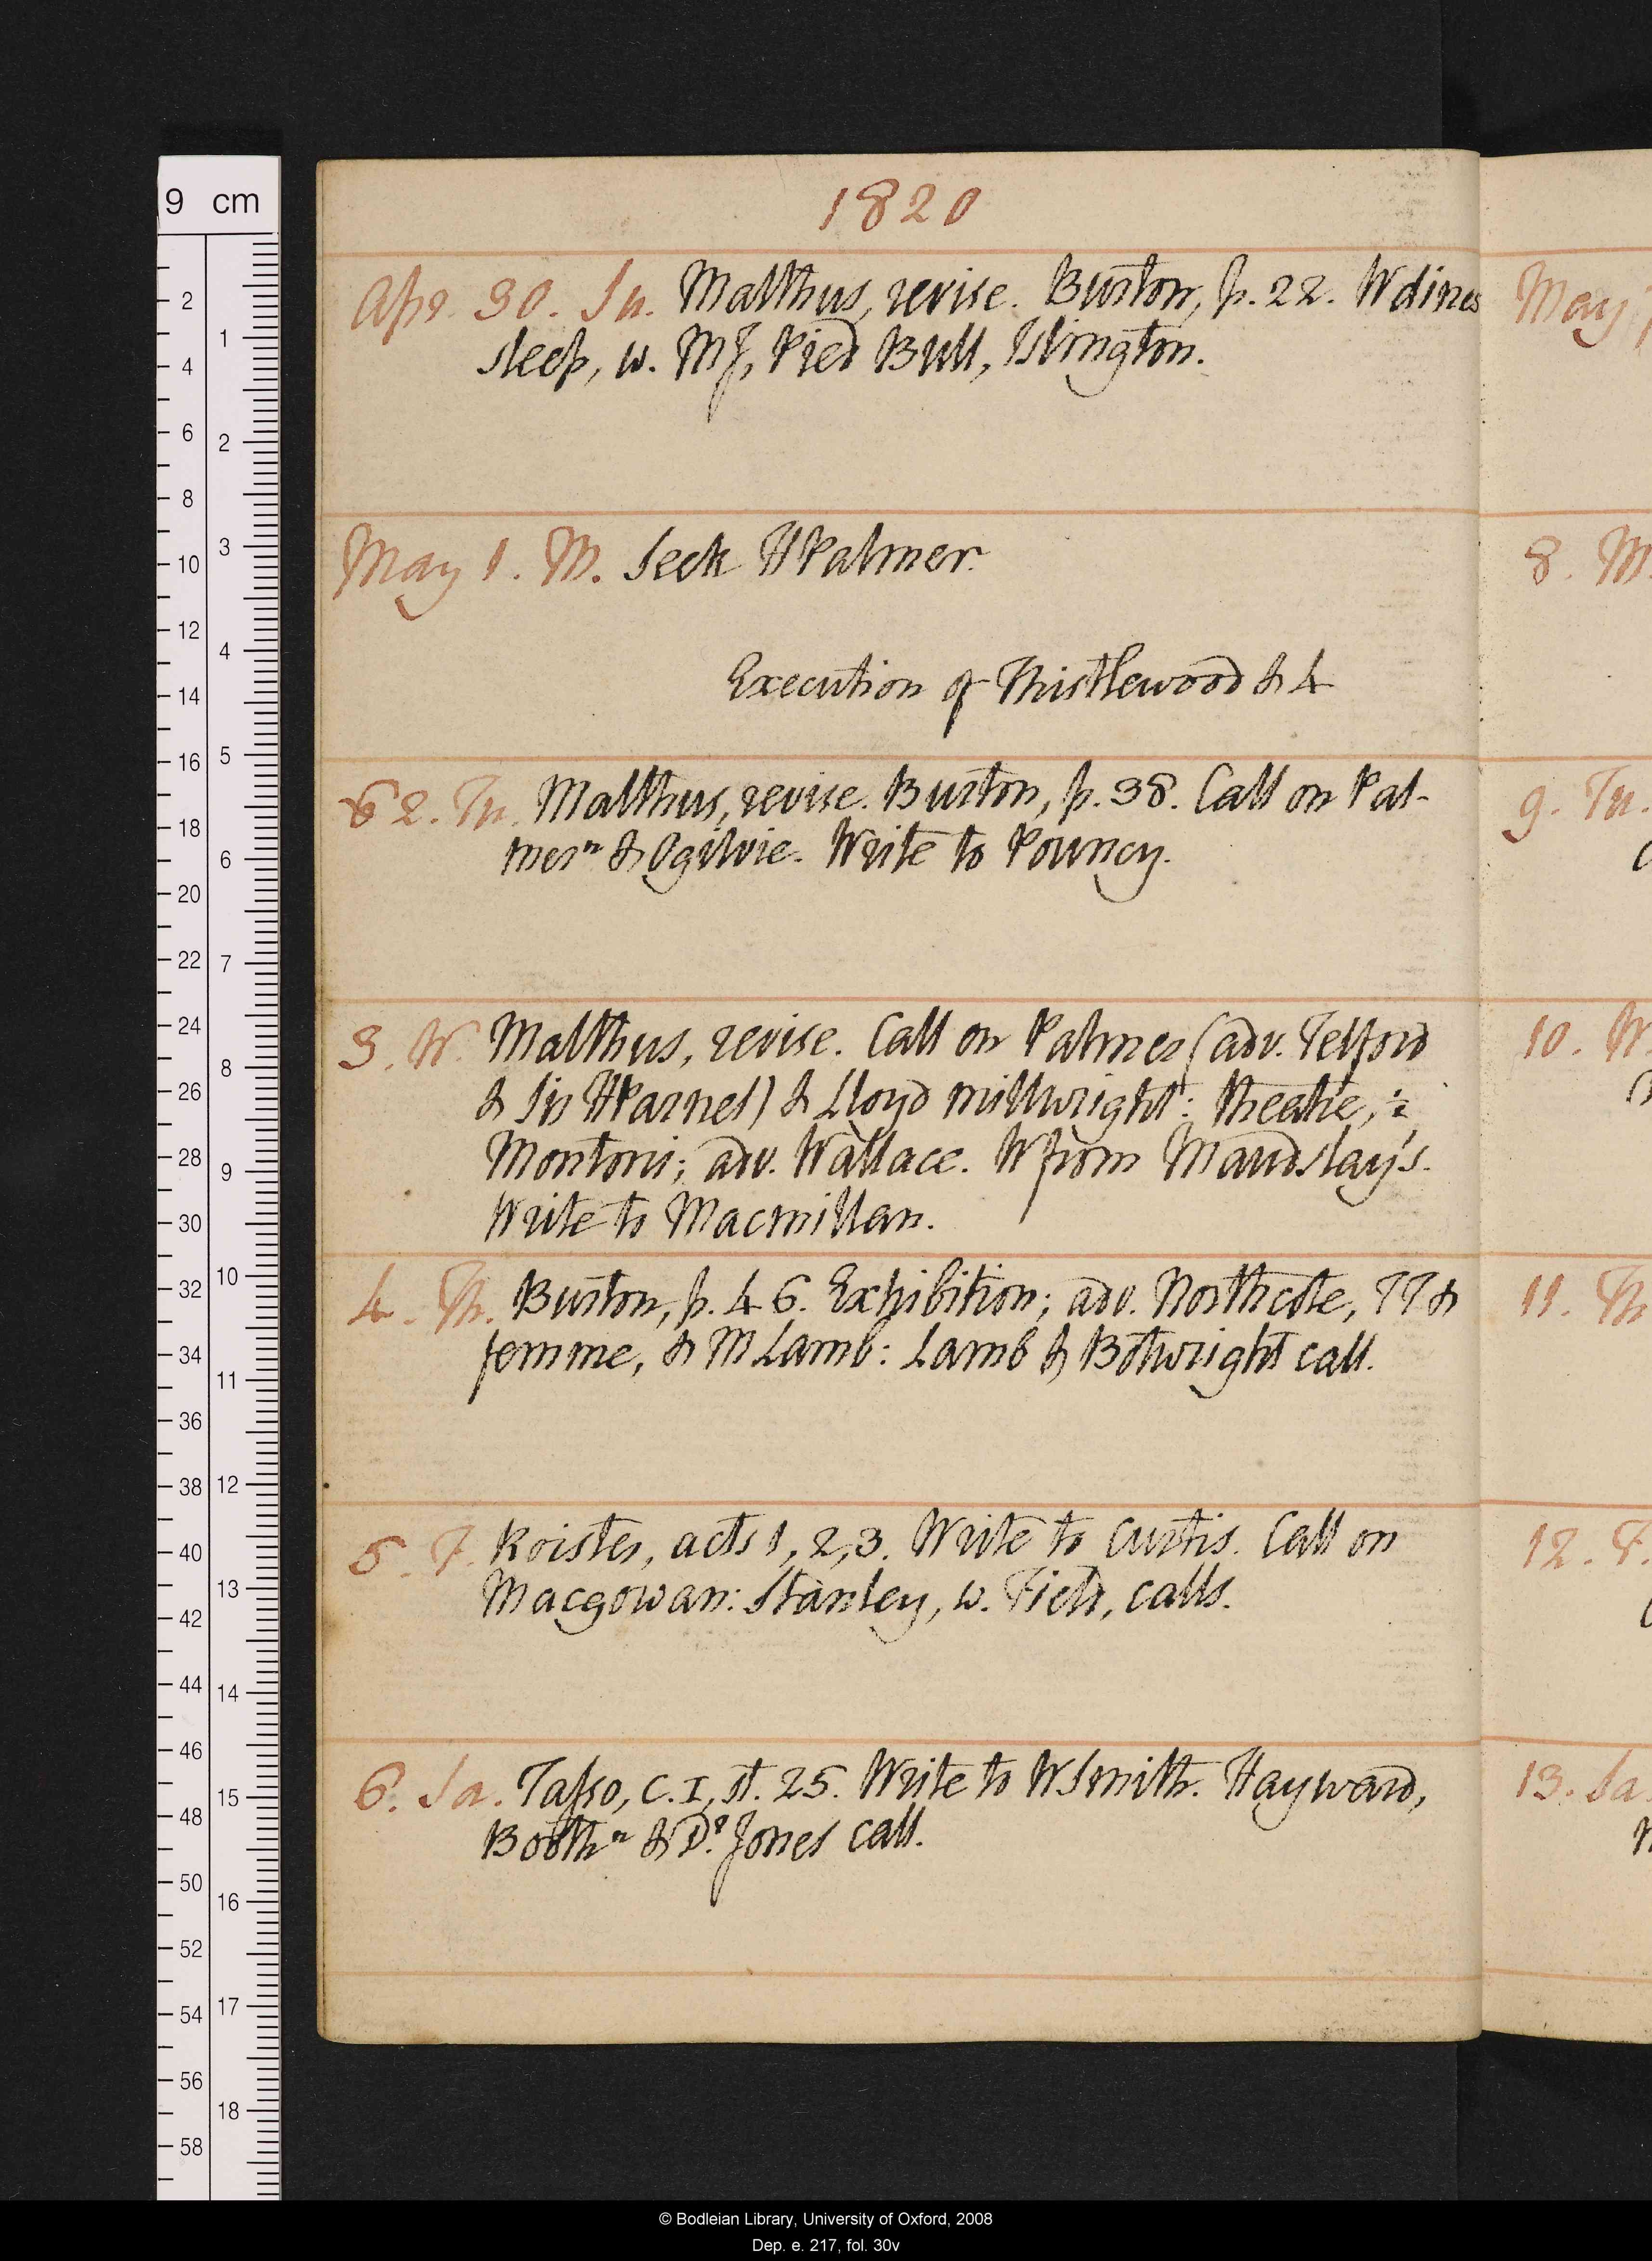 1820
Apr. 30. Su. Malthus, revise. Burton, p. 22. W dines
sleep, w. MJ, Pied Bull, Islington.
May 1. M. Seek HPalmer.
Execution of Thistlewood & 4
2. Tu. Malthus, revise. Burton, p. 38. Call on Pal-
mer n & Ogilvie. Write to Pouncy.
3. W. Malthus, revise. Call on Palmer (adv. Telford
& Sir HParnel) & Lloyd millwright: theatre, ½
Montoni; adv. Wallace. W from Maudslay's.
Write to Macmillan.
4. Th. Burton, p. 46. Exhibition; adv. Northcote, TT &
femme, & M Lamb: Lamb & Botwright call.
5. F. Roister, acts 1, 2, 3. Write to Curtis. Call on
Macgowan: Stanley, w. Field, calls.
6. Sa. Tasso, C. I, st. 25. Write to WSmith. Hayward,
Booth n & Dr. Jones call.
May
8. M
9. Tu.
10. W
11. Th
12. F.
13. Sa.
9 cm
2 4 6 8 10 12 14 16 18 20 22 24 26 28 30 32 34 36 38 40 42 44 46 48 50 52 54 56 58
1 2 3 4 5 6 7 8 9 10 11 12 13 14 15 16 17 18
© Bodleian Library, University of Oxford, 2008
Dep. e. 217, fol. 30v